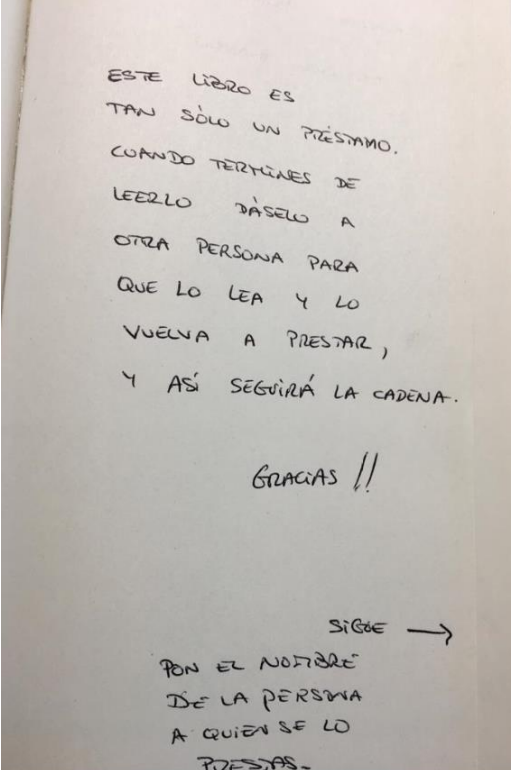 ESTE LIBRO ES
TAN SÓLO UN PRÉSTAMO.
CUANDO TERMINES DE
LEERLO DÁSELO A
OTRA PERSONA PARA
QUE LO LEA Y LO
VUELVA A PRESTAR,
Y ASÍ SEGUIRÁ LA CADENA.
GRACIAS !!
SIGUE →
PON EL NOMBRE
DE LA PERSONA
A QUIEN SE LO
PRESTAS.